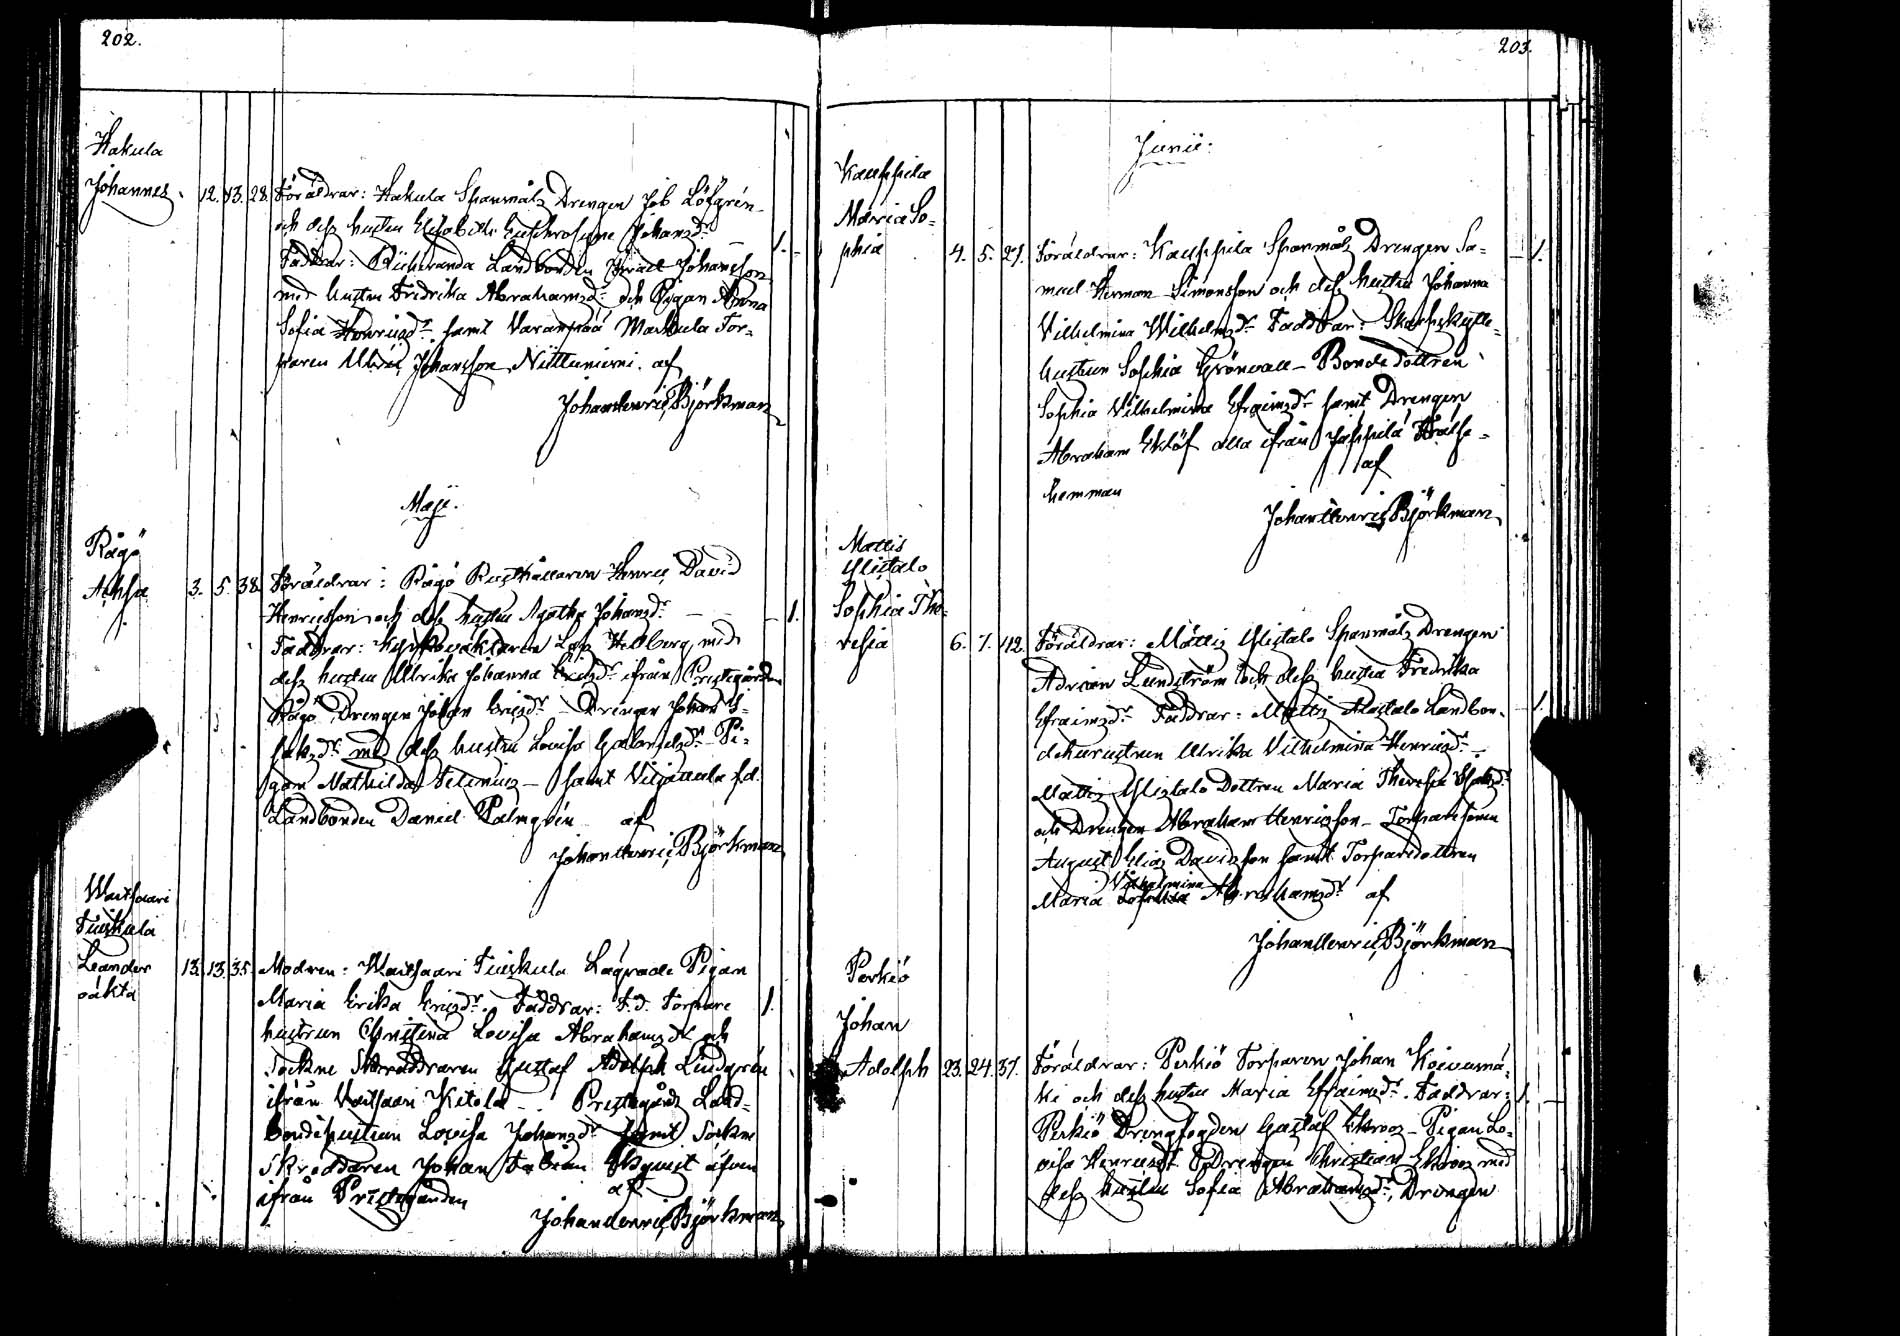 202.
Hakula
Johannes.
12. 13. 28. Föräldrar: Hakula Spanmåls Drengen Job Löfgrén
och dess hustru Elisabeth Euphrosyne Johansdr
1.
Faddrar: Landbonden Israel Johansson
med hustru Fredrika Abrahamsdr och Pigan Anna
Sofia Henricsdr samt Varanpää Markula Tor-
paren Johansson Niittuniemi. af
Johan Henric Björkman
Maji.
Rågö
3. 5. 38. Föräldrar: Rågö Rusthållaren Henric David
Henricsson och dess hustru Agatha Johansdr
1.
Faddrar: Kyrkoväktaren Hedberg med
dess hustru Ulrika Johanna Ericsdr ifrån Prestegården
Rågö Drengen Johan Ericsdr – Drengen Johan
med dess hustru Lovisa Gabrielsdr – Pi-
gan Mathilda – samt Viljakkala f.d.
Landbonden Daniel Palmqvén af
Johan Henric Björkman
Waitsaari
Tuiskula
Leander
oäkta
13. 13. 35. Modren: Waitsaari Tuiskula Lägrade Pigan
Maria Erika Ericsdr. Faddrar: F.d. Torpare
1.
hustrun Christina Lovisa Abrahamsdr och
Sockne Skräddaren Gustaf Adolph Lindgrén
ifrån Vaitsaari Kitola – Prestegårds Land-
bondehustrun Lovisa Johansdr samt Sockne
Skräddaren Johan Fabian Ekquist äfven
ifrån Prestegården af
Johan Henric Björkman
203.
Junii.
Kauppila
Maria So-
phia
4. 5. 27. Föräldrar: Kauppila Spanmåls Drengen Sa-
1.
muel Herman Simonsson och dess hustru Johanna
Vilhelmina Wilhelmsdr Faddrar: Skarpskytte-
hustrun Sophia Grönvall – Bonde Dottren
Sophia Vilhelmina Efraimsdr samt Drengen
Abraham Eklöf alla ifrån Jappilä Frälse-
hemman af
Johan Henric Björkman
Mattis
Ylistalo
Sophia The-
resia
6. 7. 42. Föräldrar: Mattis Ylistalo Spanmåls Drengen
Adrian Lundström och dess hustru Fredrika
Efraimsdr Faddrar: Mattis Alastalo Landbon-
1.
dehustrun Ulrika Vilhelmina Henricsdr –
Mattis Ylistalo Dottren Maria Theresia
och Drengen Abraham Henricsson – Torparesonen
August Elias Davidsson samt Torparedottren
Maria Vilhelmina Abrahamsdr af
Johan Henric Björkman
Perkiö
Johan
Adolph
23. 24. 37. Föräldrar: Perkiö Torparen Johan Koivumä-
ki och dess hustru Maria Efraimsdr. Faddrar:
1.
Perkiö Drengfogden Gustaf Ekroos – Pigan Lo-
visa Henricsdr Drengen Christian Ekroos med
dess hustru Sofia Abrahamsdr, Drengen